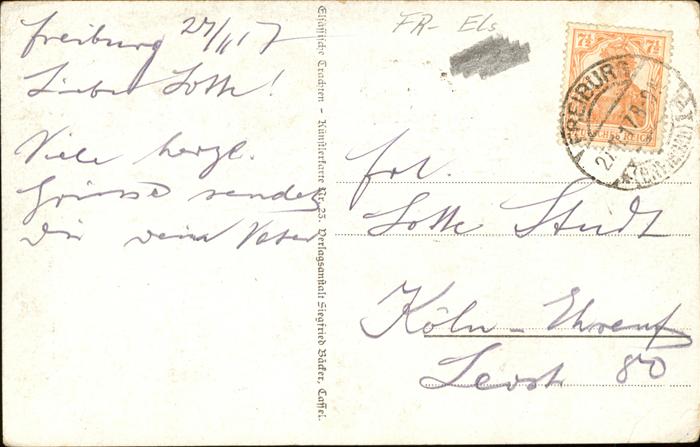 Freiburg 27/II 17
Liebe Lotte!
Viele herzl.
Grüsse sendet
Dir dein Vater
Elsässische Trachten - Künstlerkarte Nr. 23. Verlagsanstalt Siegfried Bäcker, Cassel.
FR- Els
7½ 7½
DEUTSCHES REICH
FREIBURG
(BREISGAU)
Frl.
Lotte Studt
Köln-Ehrenf
80